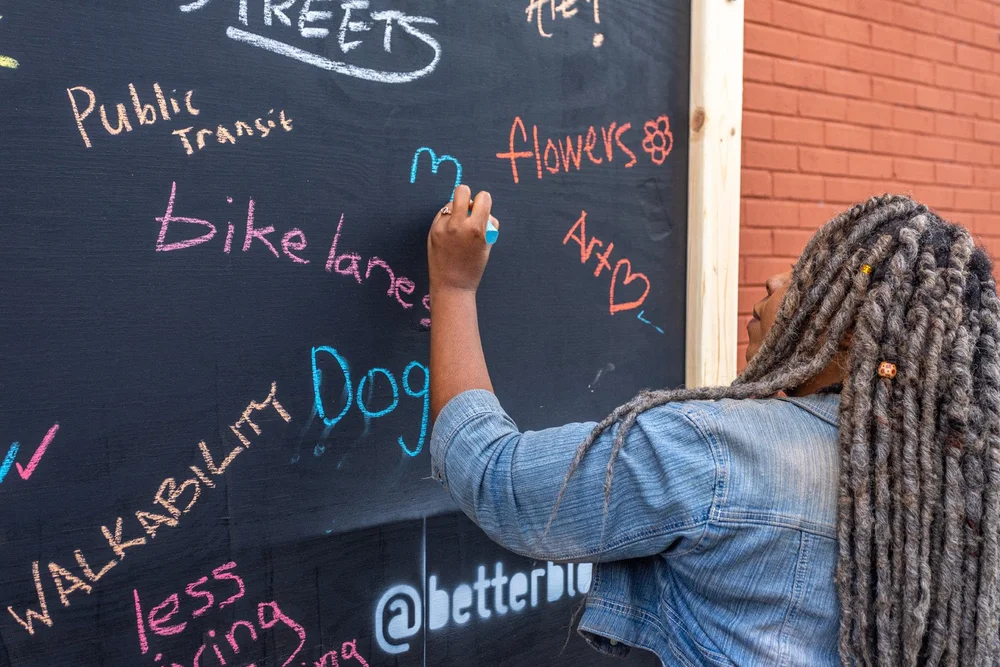 STREETS
Public
Transit
flowers
bike lanes
Art
Dog
WALKABILITY
less